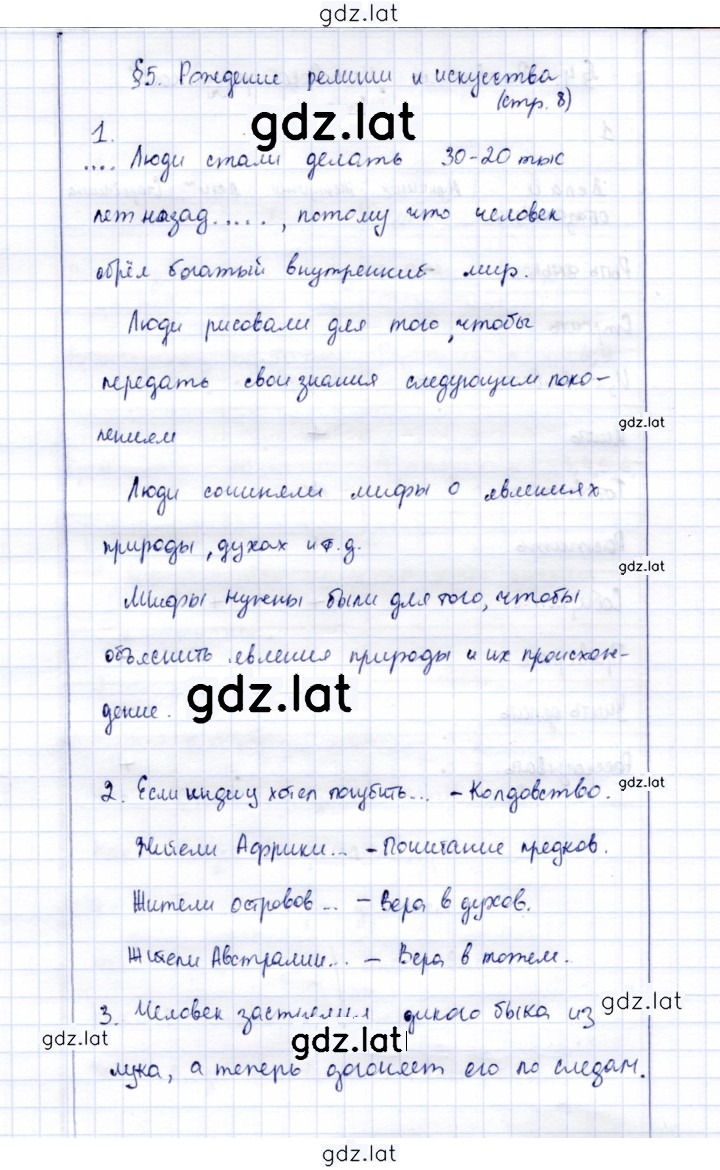 gdz.lat
§5. Рождение религии и искусства
(стр. 8)
gdz.lat
1.
.... Люди стали делать 30-20 тыс
лет назад....., потому что человек
обрёл богатый внутренний мир.
Люди рисовали для того, чтобы
передать свои знания следующим поко-
gdz.lat
лениям
Люди сочиняли мифы о явлениях
природы, духах и т.д.
gdz.lat
Мифы нужны были для того, чтобы
объяснить явления природы и их происхож-
gdz.lat
дение.
2. Если индиец хотел погубить... - Колдовство.
gdz.lat
Жители Африки... - Почитание предков.
Жители островов... - Вера в духов.
Жители Австралии... - Вера в тотем.
3. Человек застрелил дикого быка из
gdz.lat
gdz.lat
gdz.lat
лука, а теперь догоняет его по следам.
gdz.lat